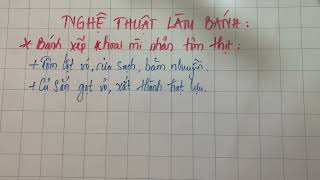 NGHỆ THUẬT LÀM BÁNH:
* Bánh xếp khoai mì nhân tôm thịt:
+ Tôm lột vỏ, rửa sạch, bằm nhuyễn.
+ Củ sắn gọt vỏ, xắt thành hạt lựu.